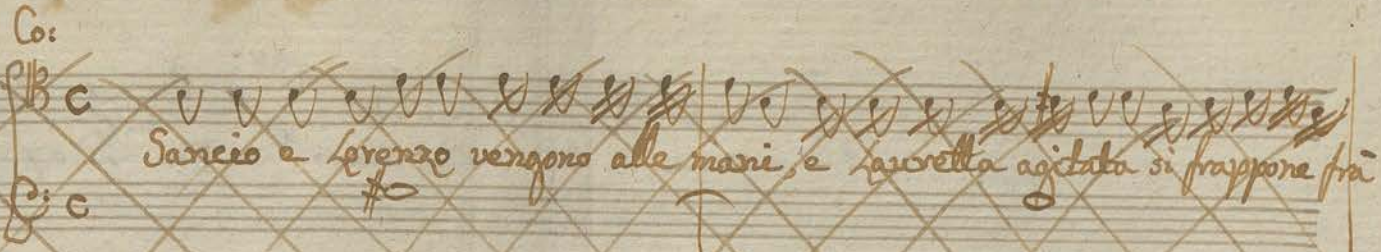 Co:
Sancio e Lorenzo vengono alle mani, e Lauretta agitata si frappone frà